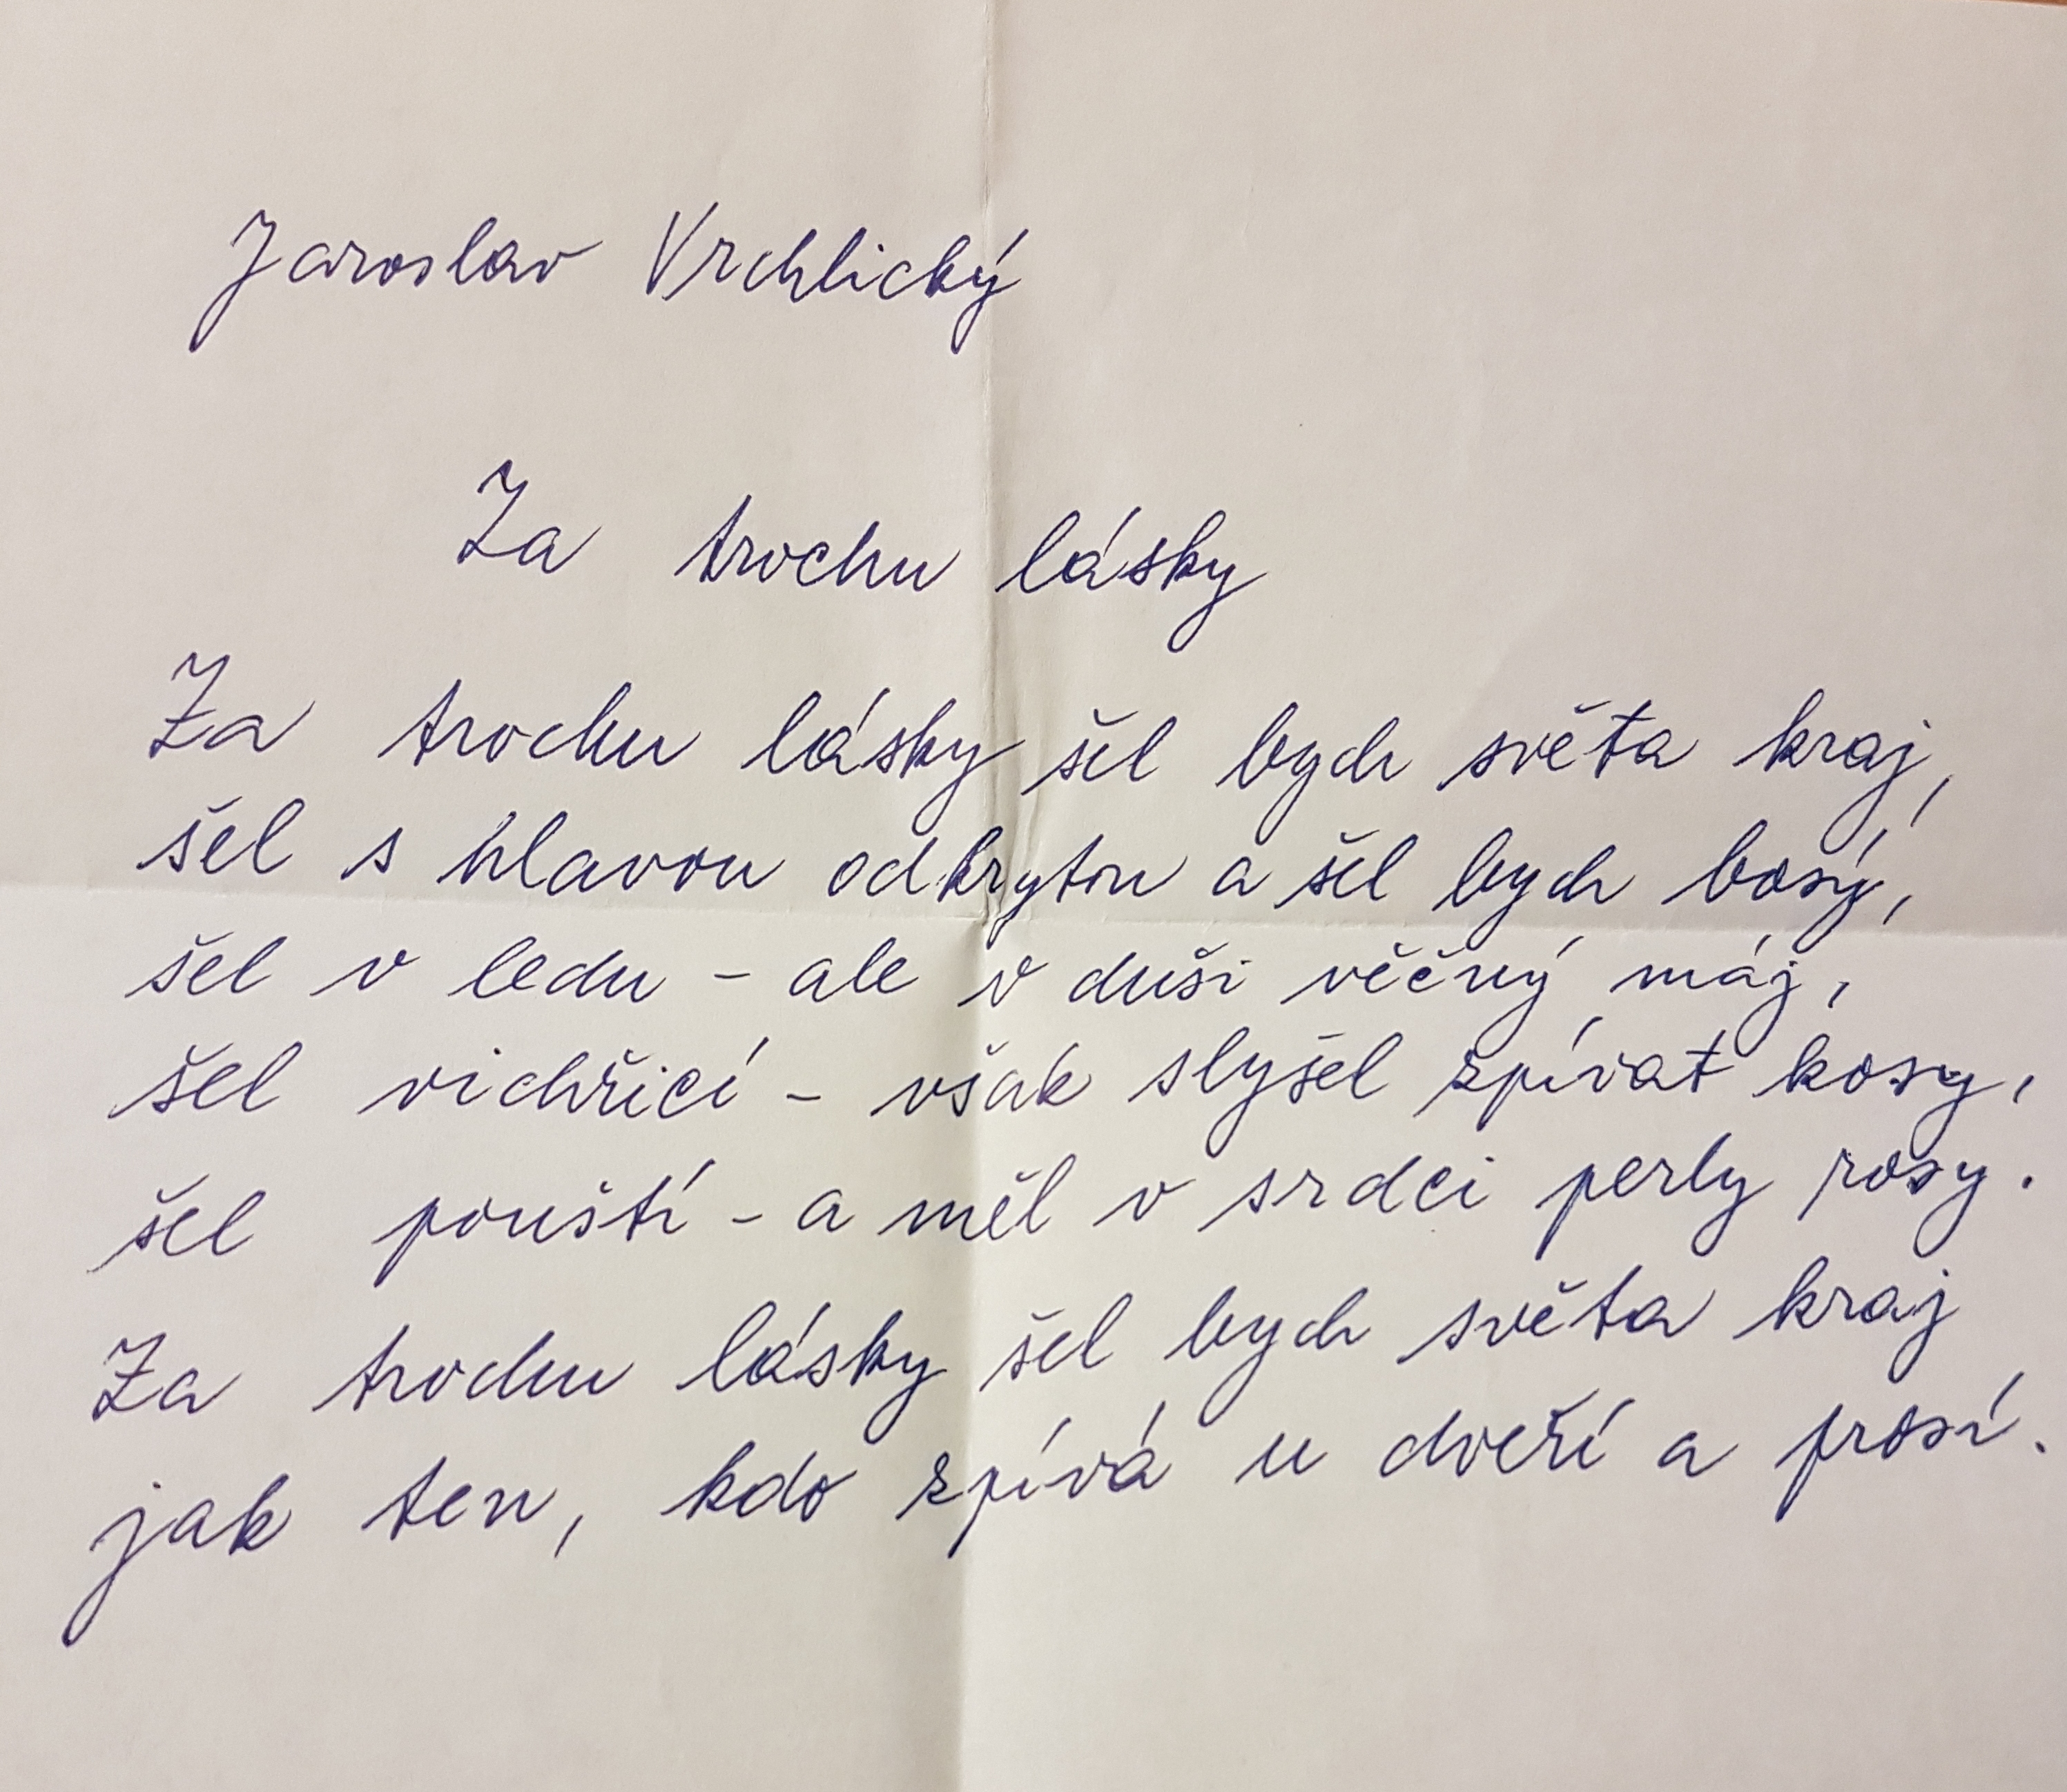 Jaroslav Vrchlický
Za trochu lásky
Za trochu lásky šel bych světa kraj,
šel s hlavou odkrytou a šel bych bosý,
šel v ledu - ale v duši věčný máj,
šel vichřicí - však slyšel zpívat kosy,
šel pouští - a měl v srdci perly rosy.
Za trochu lásky šel bych světa kraj
jak ten, kdo zpívá u dveří a prosí.